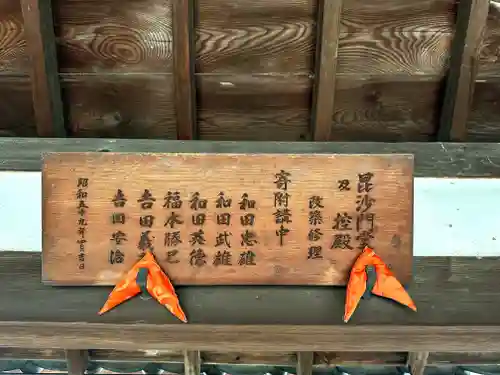 毘沙門堂
及 控殿
改築修理
寄附講中
和田忠雄
和田武雄
和田英德
福本勝巳
吉田義
吉田安治
昭和五十九年四月吉日